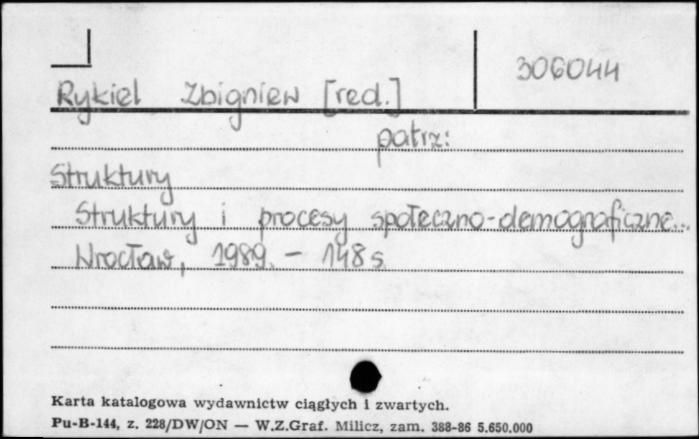 306044
Rykiel Zbigniew [red.]
patrz:
Struktury
Struktury i procesy społeczno-demograficzne...
Wrocław, 1989. - 148 s.
Karta katalogowa wydawnictw ciągłych i zwartych.
Pu-B-144, z. 228/DW/ON — W.Z.Graf. Milicz, zam. 388-86 5.650.000